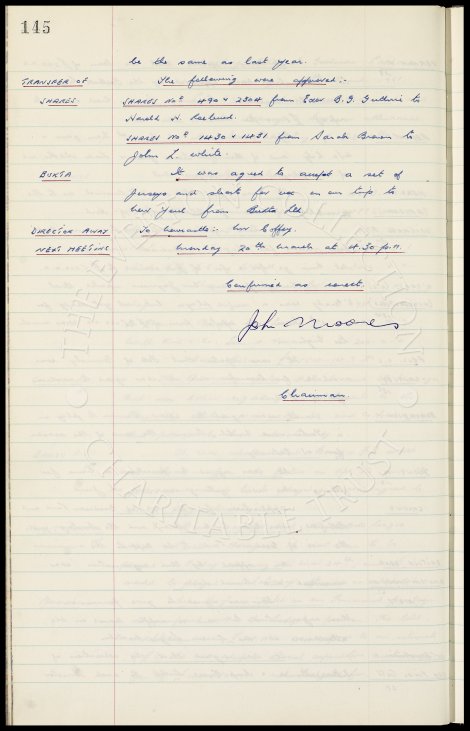 145
be the same as last year.
TRANSFER OF The following were approved:-
SHARES. SHARES Nos 490 & 2304 from Exor B.G. Guthrie to
Harold H.
SHARES Nos 1430 & 1431 from Sarah Brown to
John L. White
BUKTA It was agreed to accept a set of
Jerseys and shorts for use on our trip to
New York from Bukta Ltd
DIRECTOR AWAY To Newcastle:- Mr Coffey.
NEXT MEETING Monday 20th March at 4.30 p.m.
Confirmed as correct.
John Moores
Chairman.
THE EVERTON COLLECTION
CHARITABLE TRUST